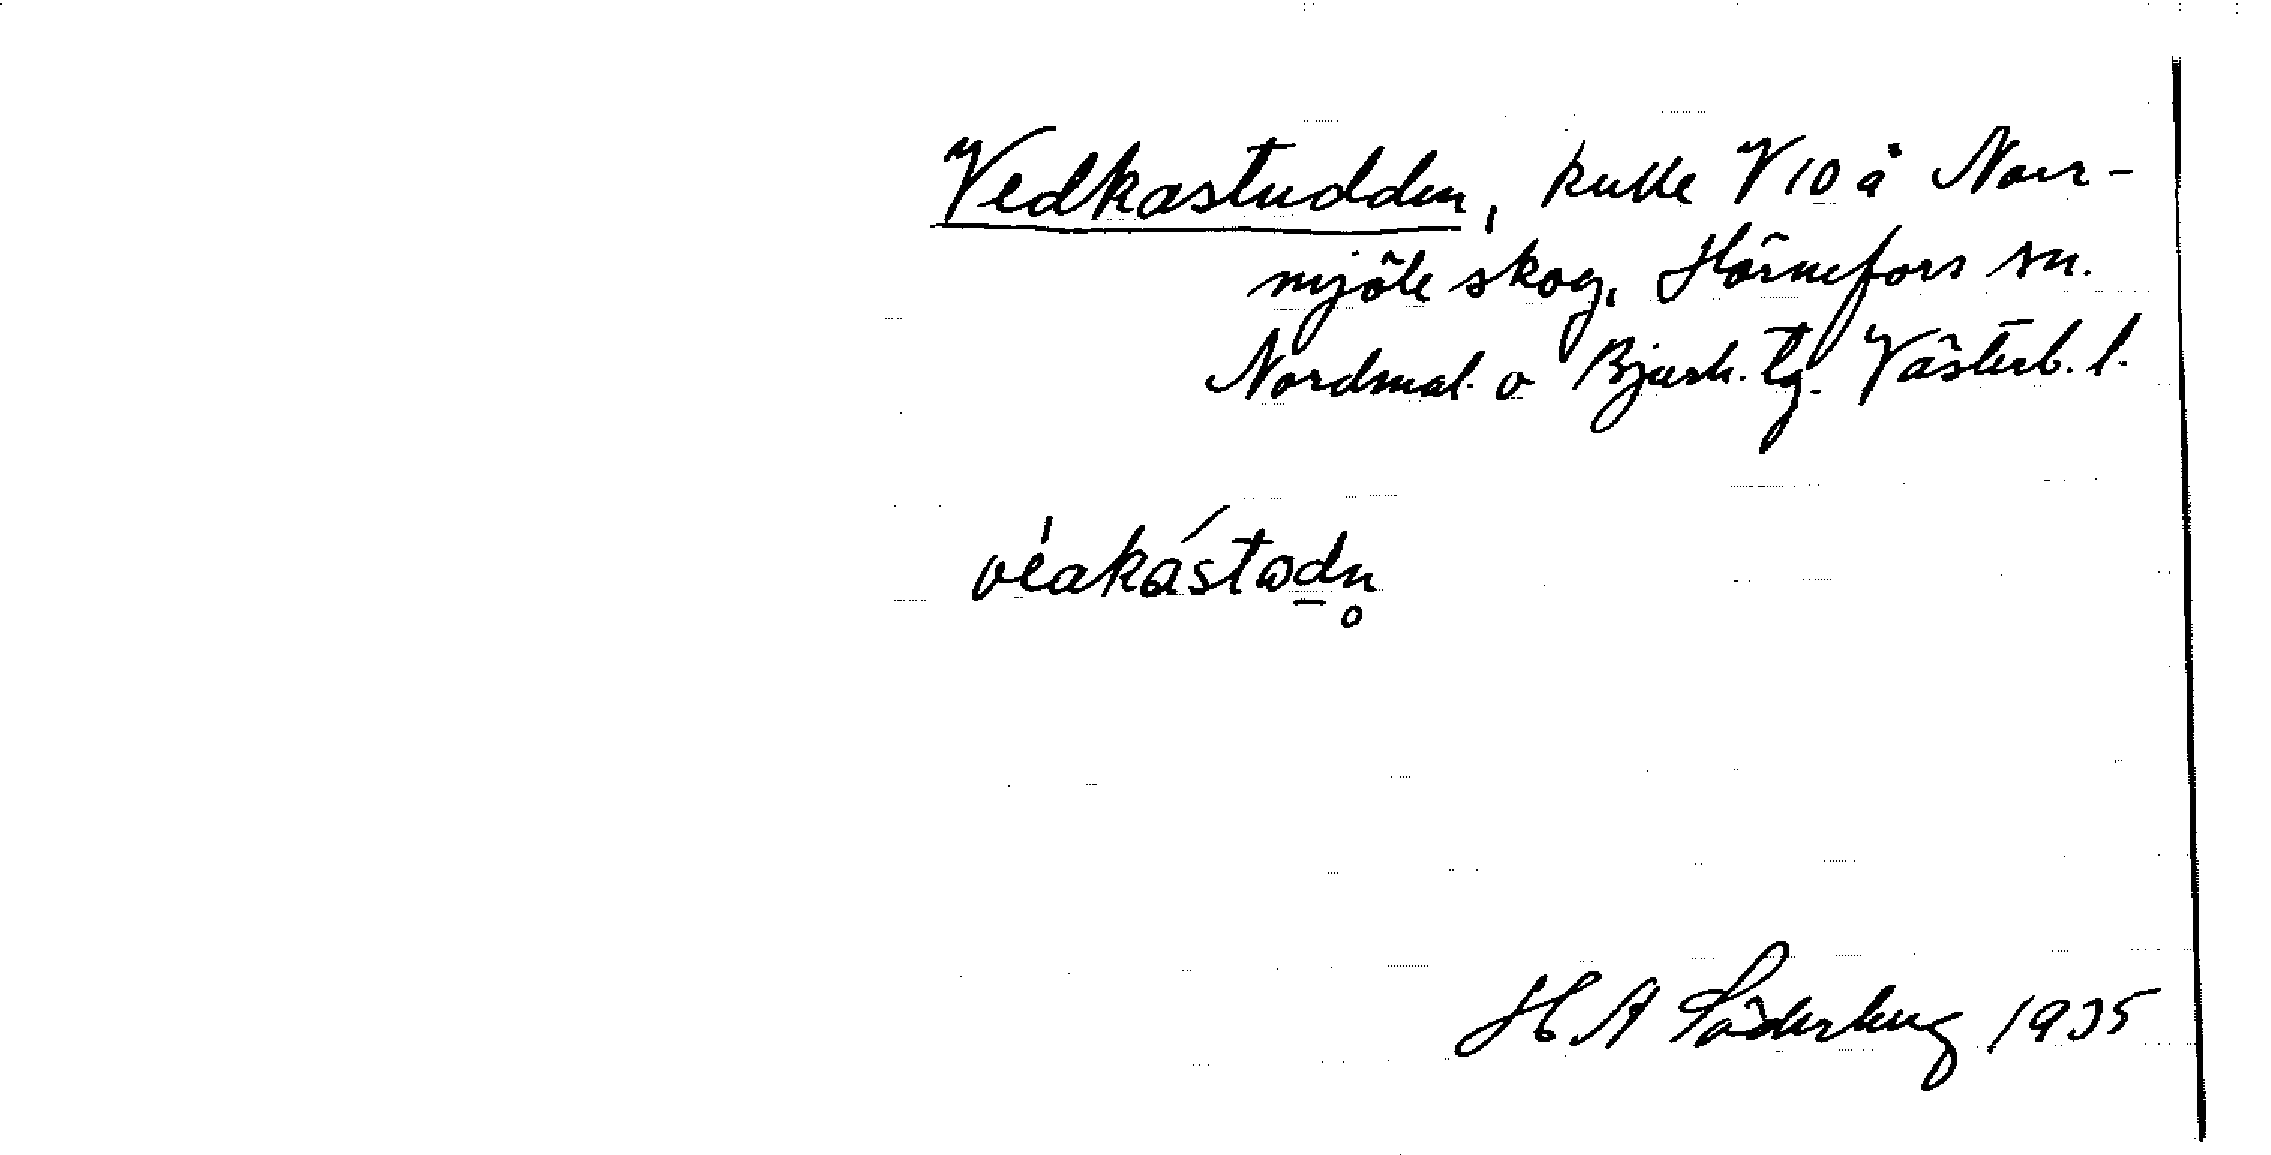 Vedkastudden, kulle V 10 å Norr-
mjöle skog, Hörnefors sn.
Nordmal. o Bjurh. tg. Västerb. l.
véakástꞷdn̥
H A Söderberg 1935